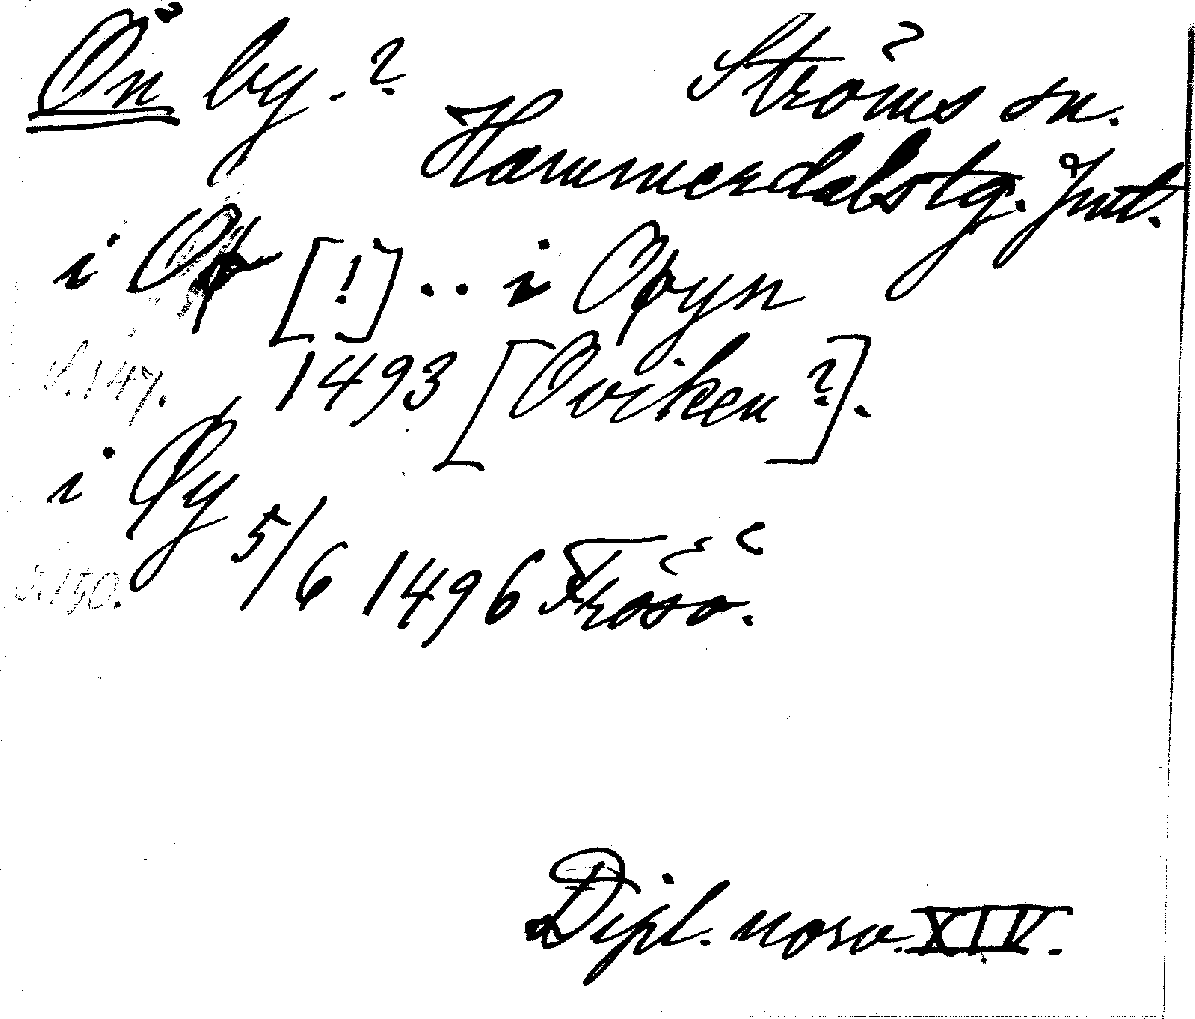 Ön by.? Ströms sn.
Hammerdals tg. Jmt.
i Oø [!] . . i Oøyn
s. 147. 1493 [Oviken?].
i Øy 5/6 1496 Frösö.
s. 150.
Dipl. norv. XIV.